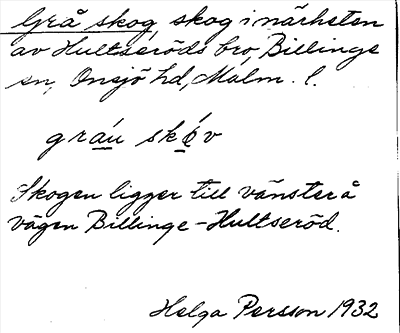 Grå skog, skog i närheten
av Hultseröds bro, Billinge
sn, Onsjö hd, Malm. l.
gráu skóv
Skogen ligger till vänster å
vägen Billinge-Hultseröd.
Helga Persson 1932